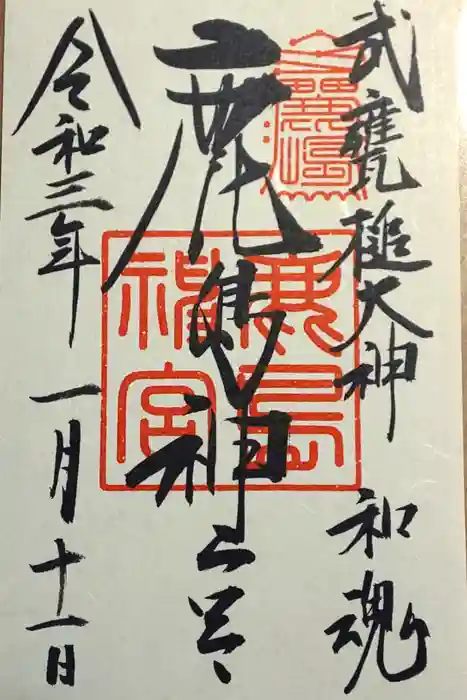 武甕槌大神 和魂
鹿島神宮
鹿島
神宮
令和三年 一月十一日